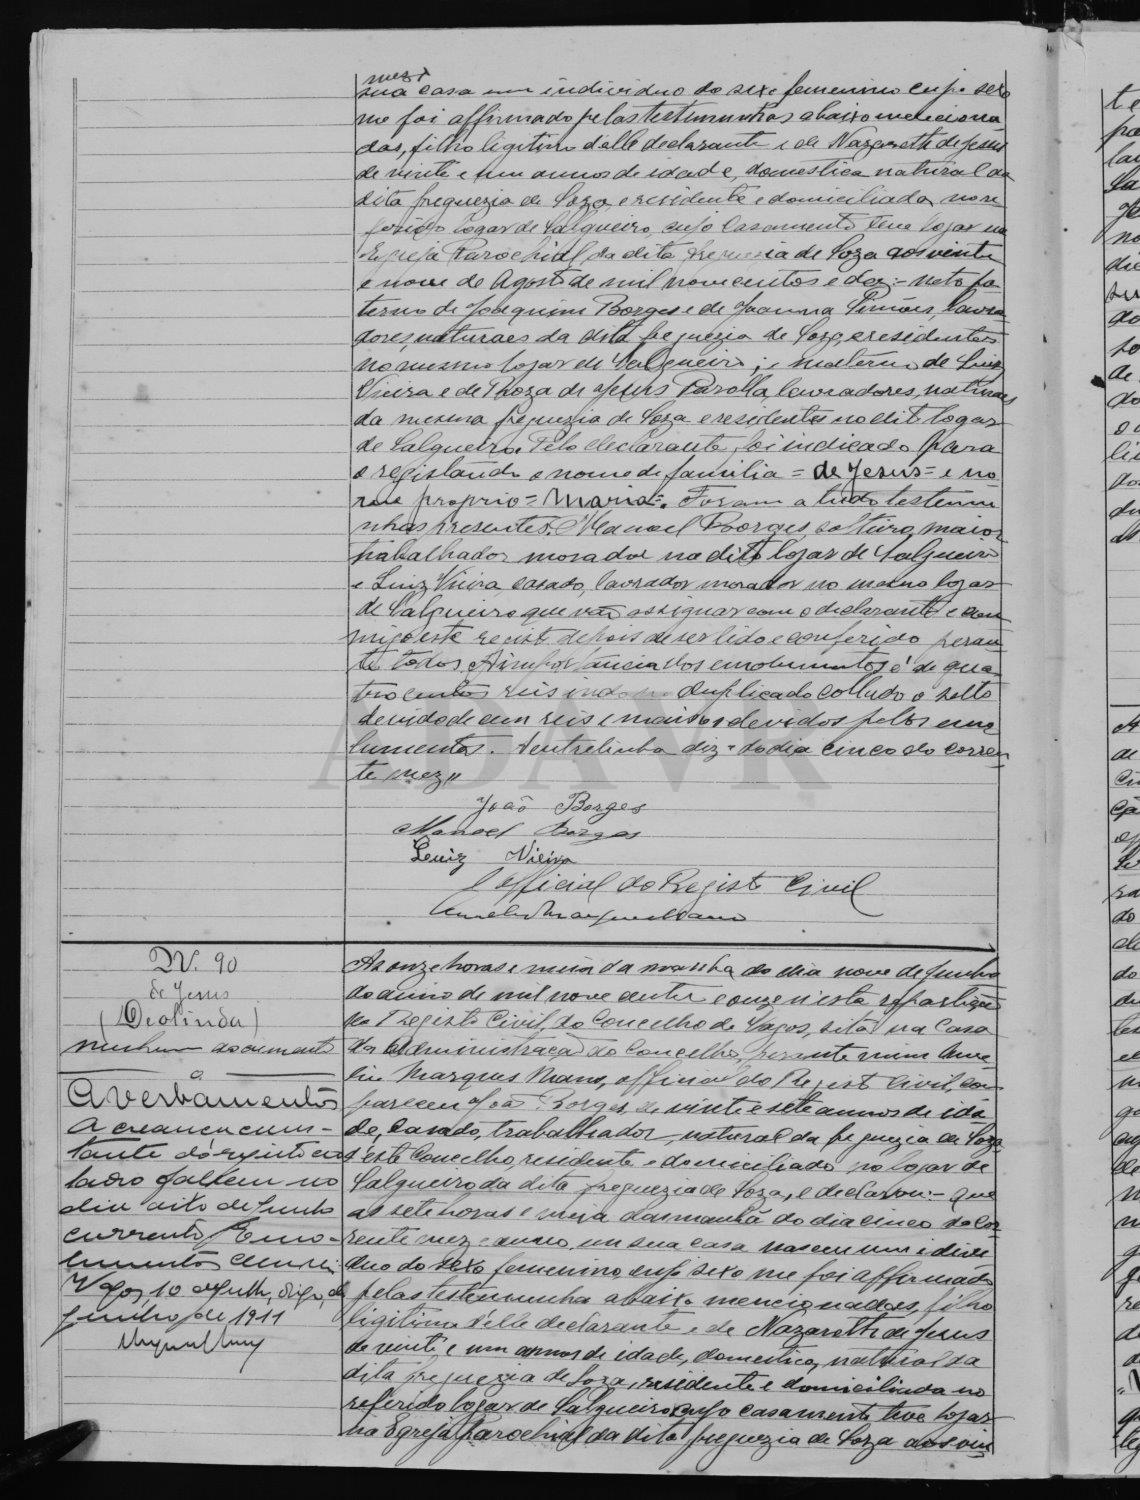 mez
sua casa um individuo do sexo femenino cujo sexo
me foi affirmado pelas testimunhas abaixo menciona
das, filho ligitimo d'elle declarante e de Nazareth de Jesus
de vinte e um annos de idade, domestica natural da
dita freguezia de Soza, e residente e domiciliada no re
ferido logar de Salgueiro, cujo casamento teve logar na
Egreja Parochial da dita freguezia de Soza aos vinte
e nove de Agosto de mil novecentos e dez:- neto pa
terno de Joaquim Borges e de Joanna Simões, lavra
dores, naturaes da dita freguezia de Soza, e residentes
no mesmo logar de Salgueiro; e materno de Luiz
Vieira e de Roza de Jesus Parolla, lavradores, naturaes
da mesma freguezia de Soza e residentes no dito logar
de Salgueiro. Pelo declarante foi indicado para
o registando o nome de familia = de Jesus = e no
me proprio = Maria =. Foram a tudo testemu
nhas presentes: Manoel Borges, solteiro, maior
trabalhador morador no dito logar de Salgueiro
e Luiz Vieira, casado, lavrador morador no mesmo logar
de Salgueiro que vão assignar com o declarante e com
migo este registo depois de ser lido e conferido peran
te todos. A importancia dos emolumentos é de qua
trocentos reis indo no duplicado collado o sello
devido de cem reis e mais os devidos pelos emo
lumentos. A entrelinha diz = do dia cinco do corren
te mez =
João Borges
Manoel Borges
Luiz Vieira
O official do Registo Civil
N.º 90
de Jesus
(Deolinda)
nenhum documento
Averbamentos
A creança cons-
tante do registo ao
lado faleceu no
dia oito de Junho
corrente. Emo-
lumentos cem reis
Vagos, 10 de Julho, digo, de
Junho de 1911
As onze horas e meia da manhã do dia nove de Junho
do anno de mil nove centos e onze n'esta repartição
do Registo Civil, do Concelho de Vagos, sita na Casa
da Administração do Concelho, perante mim Ame
lio Marques Mano, official do Registo Civil, com
pareceu João Borges, de vinte e sete annos de ida
de, casado, trabalhador, natural da freguezia de Soza
d'este Concelho, residente e domiciliado no logar de
Salgueiro da dita freguezia de Soza, e declarou:- que
as sete horas e meia da manhã do dia cinco do cor
rente mez e anno, em sua casa nasceu um indivi
duo do sexo femenino, cujo sexo me foi affirmado
pelas testemunhas abaixo mencionadas, filho
ligitimo d'elle declarante e de Nazareth de Jesus
de vinte e um annos de idade, domestica, natural da
dita freguezia de Soza, residente e domiciliada no
referido logar de Salgueiro cujo casamento teve logar
na Egreja Parochial da dita freguezia de Soza aos vin
ADAVR